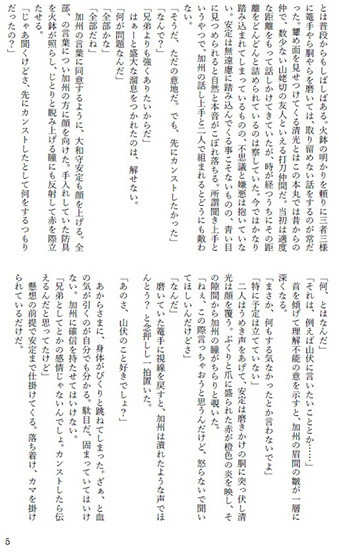 とは普段からもしばしばある。火鉢の明かりを頼りに三者三様
に篭手やら胴やらを磨いては、取り留めない話をするのが常だ
った。顰め面を見せつけてくる清光とはこの本丸では昔からの
仲で、数少ない山姥切の友人といえる打刀仲間だ。当初は適度
な距離をもって話しかけてきていたが、時が経つうちにその距
離をどんどんと詰められているのは察していた。今ではかなり
踏み込まれてしまっているものの、不思議と嫌悪は抱いていな
い。安定は無遠慮に踏み込んでくる事こそないものの、青い目
に見つめられると自然と本音がこぼれ落ちる。所謂聞き上手と
いうやつで、加州の話し上手と二人で組まれるとどうにも敵わ
ない。
「そうだ、ただの意地だ。でも、先にカンストしたかった」
「なんで？」
「兄弟よりも強くありたいからだ」
はぁーと盛大な溜息をつかれたのは、解せない。
「何が問題なんだ」
「全部かな」
「全部だね」
加州の言葉に同意するように、大和守安定も顔を上げる。全
部、の言葉につい加州の方に顔を向けた。手入れしていた防具
を火鉢が照らし、じとりと睨み上げる瞳にも反射して赤を際立
たせる。
「じゃあ聞くけどさ、先にカンストしたとして何をするつもり
だったの？」
「何、とはなんだ」
「それは、例えば山伏に言いたいこととか……」
首を傾げて理解不能の意を示すと、加州の眉間の皺が一層に
深くなる。
「まさか、何もする気なかったとか言わないでよ」
「特に予定は立てていない」
二人はうめき声をあげて、安定は磨きかけの胴に突っ伏し清
光は顔を覆う。ぷくりと爪に盛られた赤が橙色の炎を映し、そ
の隙間から加州の瞳がちらりと覗いた。
「ねぇ、この際言っちゃおうと思うんだけど、怒らないで聞い
てほしいんだけどさ」
「なんだ」
磨いていた篭手に視線を戻すと、加州は潰れたような声でほ
んとう？と念押しし一拍置いた。
「あのさ、山伏のこと好きでしょ？」
あからさまに、身体がびくりと跳ねてしまった。ざぁ、と血
の気が引くのが自分でも分かる。駄目だ、固まっていてはいけ
ない。加州に確信を持たせてはいけない。
「兄弟としてとかの感情じゃないんでしょ。カンストしたら伝
えるんだと思ってたけど」
懸想の前提で安定まで仕掛けてくる。落ち着け、カマを掛け
られているだけだ。
5